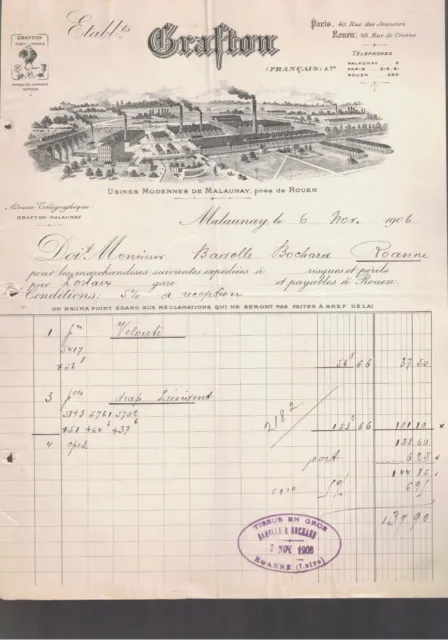 GRAFTON
Etabl.ts
Grafton
(FRANÇAIS) L.ed
Paris, 40, Rue des Jeuneurs
Rouen, 28, Rue de Crosne
TÉLÉPHONES
MALAUNAY
PARIS
ROUEN
USINES MODERNES DE MALAUNAY, près de ROUEN
Adresse Télégraphique
GRAFTON-MALAUNAY
Malaunay, le 6 Nov. 1906
Doit Monsieur Badolle Bochard Roanne
pour les marchandises suivantes expédiées à risques et périls
par gare et payables à Rouen.
Conditions: 5% à reception
ON N'AURA POINT ÉGARD AUX RÉCLAMATIONS QUI NE SERONT PAS FAITES À BREF DÉLAI
1 pce Velouté
5417
*56 8 56 8 66 37.50
3 pces drap
5893 5761 5702
*51 *64 6 *37 6 153 2 66 101.10
218 2
4 pces 138.60
port 6.25
144.85
5% 6.95
137.90
TISSUS EN GROS
BADOLLE & BOCHARD
7 NOV. 1906
ROANNE (Loire)